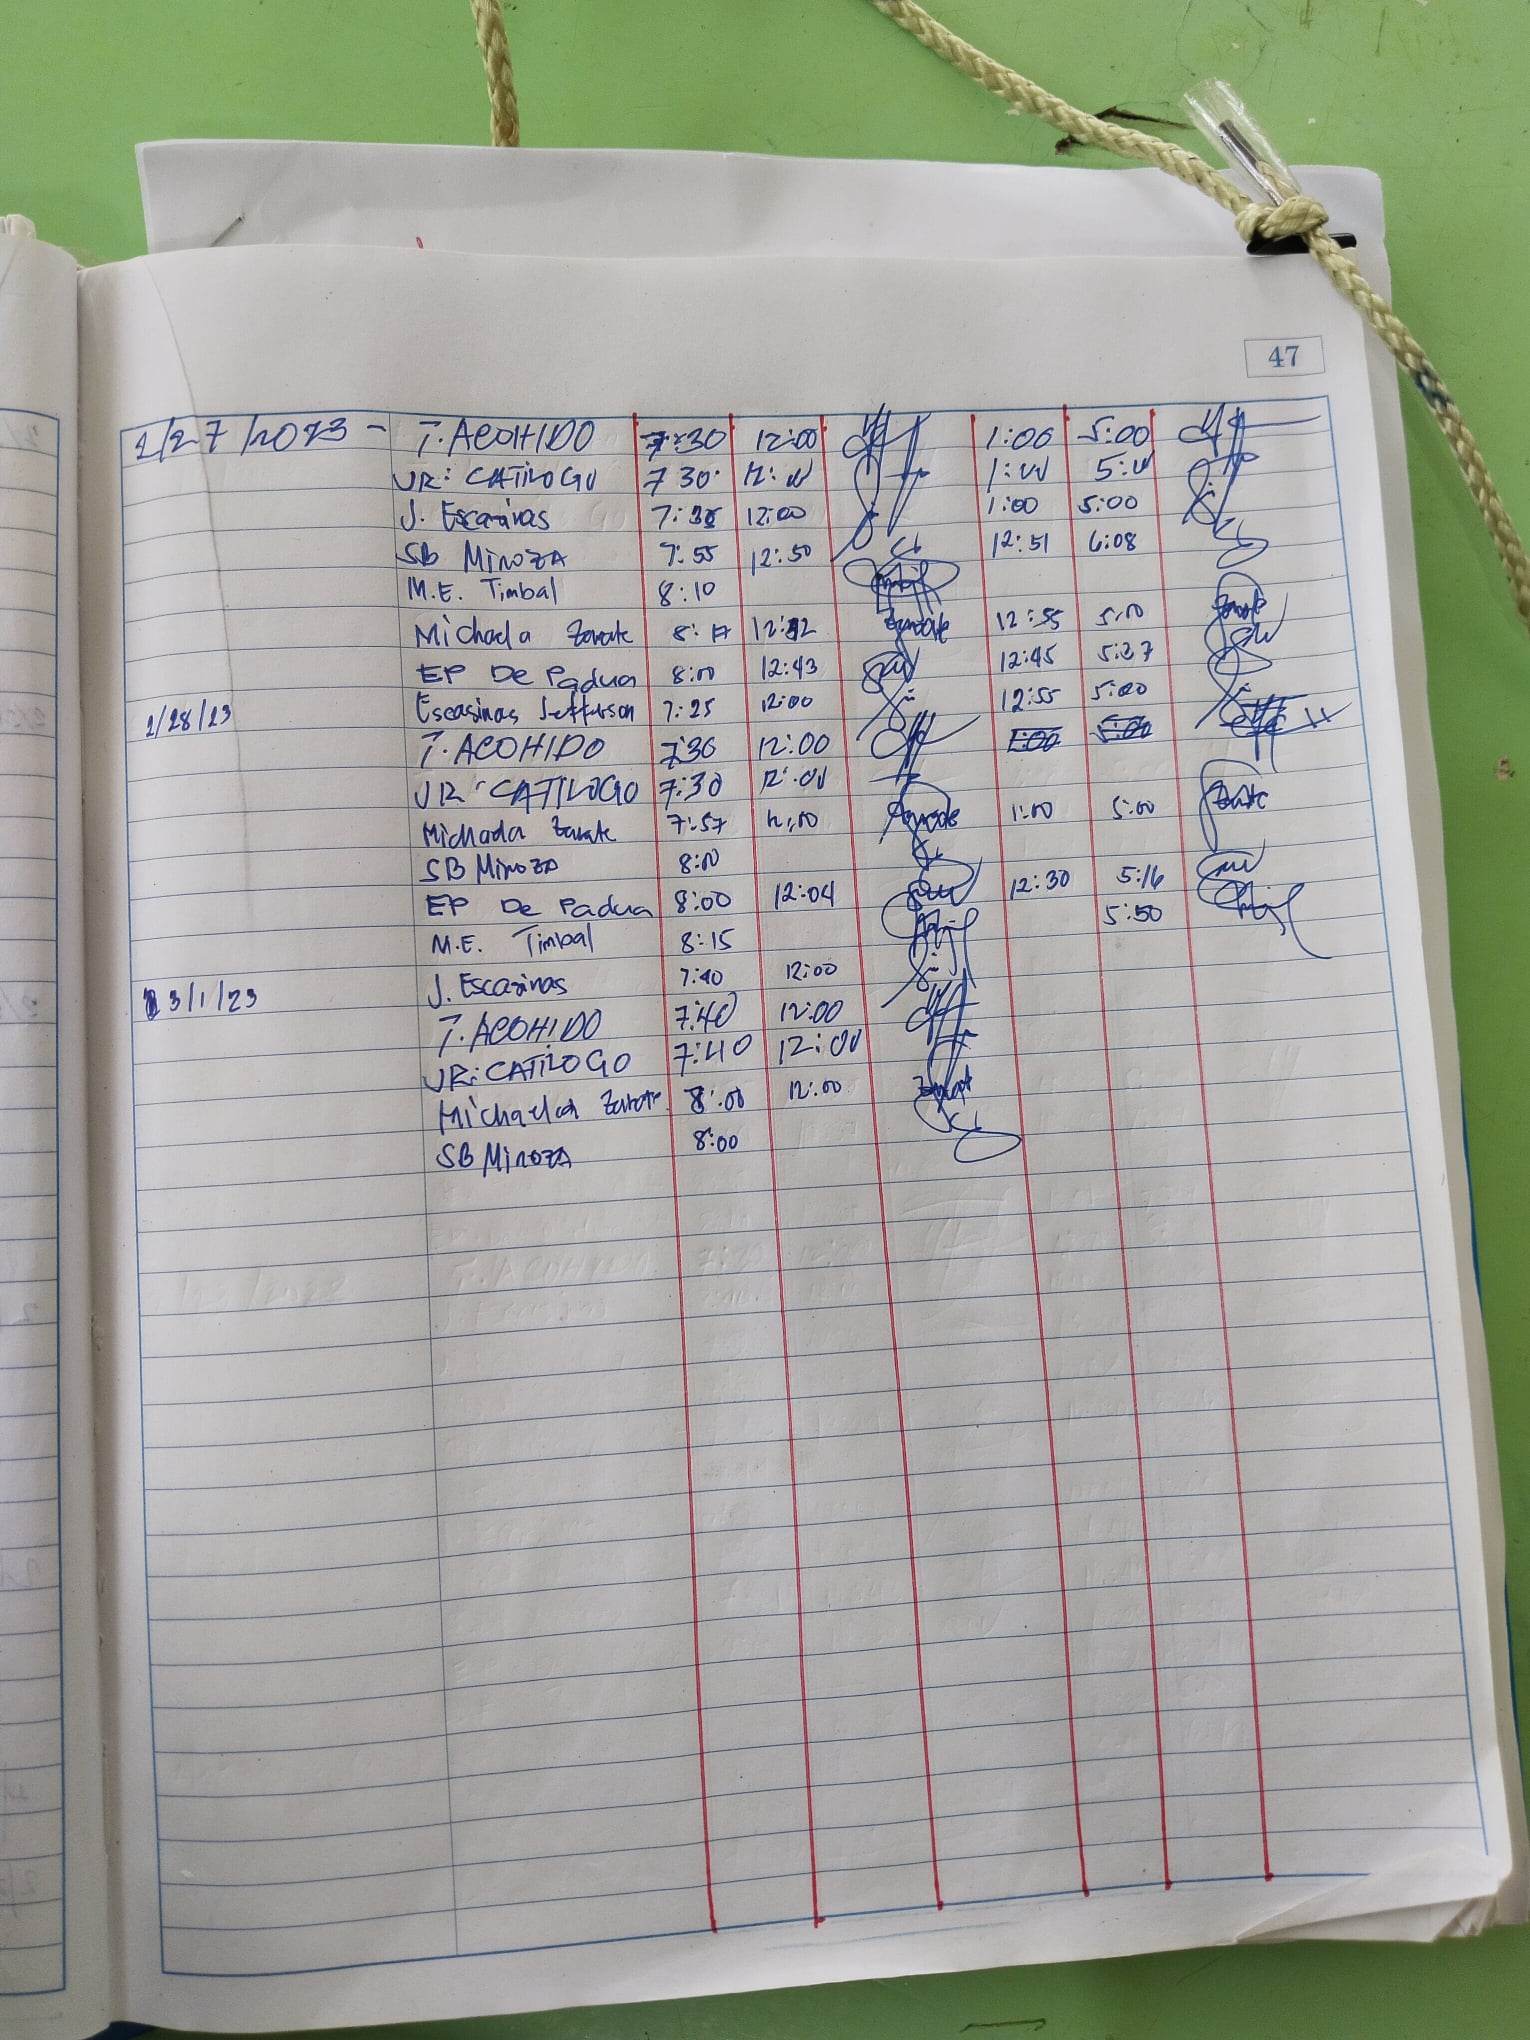 47
2/27/2023 - T. ACOHIDO 7:30 12:00 1:00 5:00
JR: CATILOGO 7 30 12:00 1:00 5:00
J. Escarinas 7:30 12:00 1:00 5:00
SB MINOZA 7:55 12:50 12:51 6:08
M.E. Timbal 8:10
Michaela Zarate 8:17 Zarate 12:55 5:00 Zarate
EP De Padua 8:00 12:43 12:45 5:27
2/28/23 Escasinas Jefferson 7:25 12:00 12:55 5:00
T. ACOHIDO 7:30 12:00 1:00 5:00
JR CATILOGO 7:30 12:00
Michaela Zarate 7:57 12:00 Zarate 1:00 5:00 Zarate
SB MINOZA 8:00
EP De Padua 8:00 12:04 12:30 5:16
M.E. Timbal 8:15 5:50
3/1/23 J. Escarinas 7:40 12:00
T. ACOHIDO 7:40 12:00
JR: CATILOGO 7:40 12:00
Michaela Zarate 8:00 12:00 Zarate
SB MINOZA 8:00